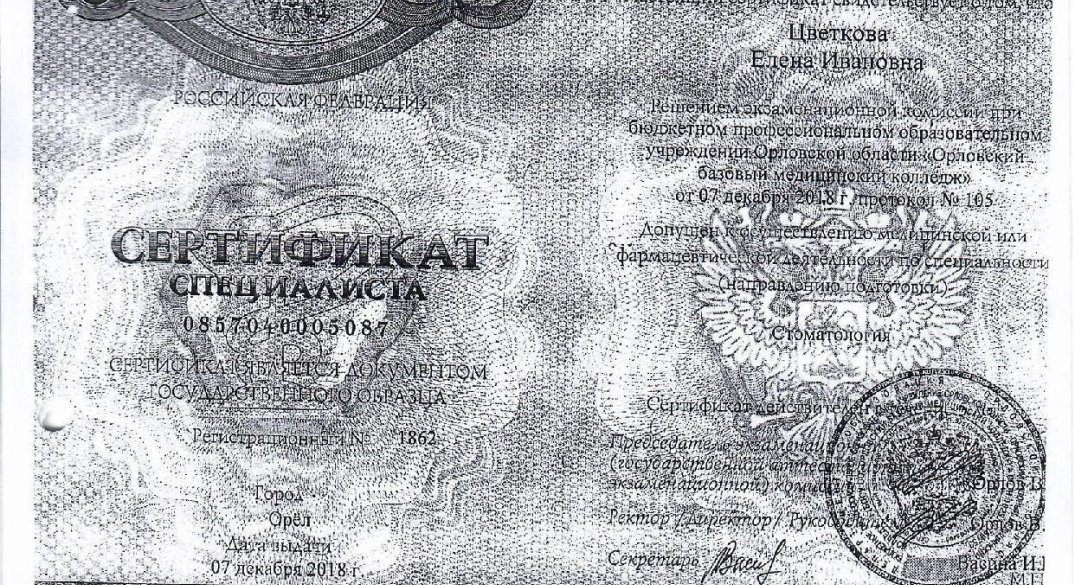 РОССИЙСКАЯ ФЕДЕРАЦИЯ
СЕРТИФИКАТ
СПЕЦИАЛИСТА
0857040005087
СЕРТИФИКАТ ЯВЛЯЕТСЯ ДОКУМЕНТОМ
ГОСУДАРСТВЕННОГО ОБРАЗЦА
Регистрационный № 1862
Город
Орёл
Дата выдачи
07 декабря 2018 г.
сертификат свидетельствует о том, что
Цветкова
Елена Ивановна
Решением экзаменационной комиссии при
бюджетном профессиональном образовательном
учреждении Орловской области «Орловский
базовый медицинский колледж»
от 07 декабря 2018 г. протокол № 105
Допущен к осуществлению медицинской или
фармацевтической деятельности по специальности
(направлению подготовки)
Стоматология
Сертификат действителен в течение
Председатель экзаменац
(государственной аттест
экзаменационной) комиссии
Орлов В
Ректор / Директор / Руководитель
Орлов В.
Секретарь
Васина И.